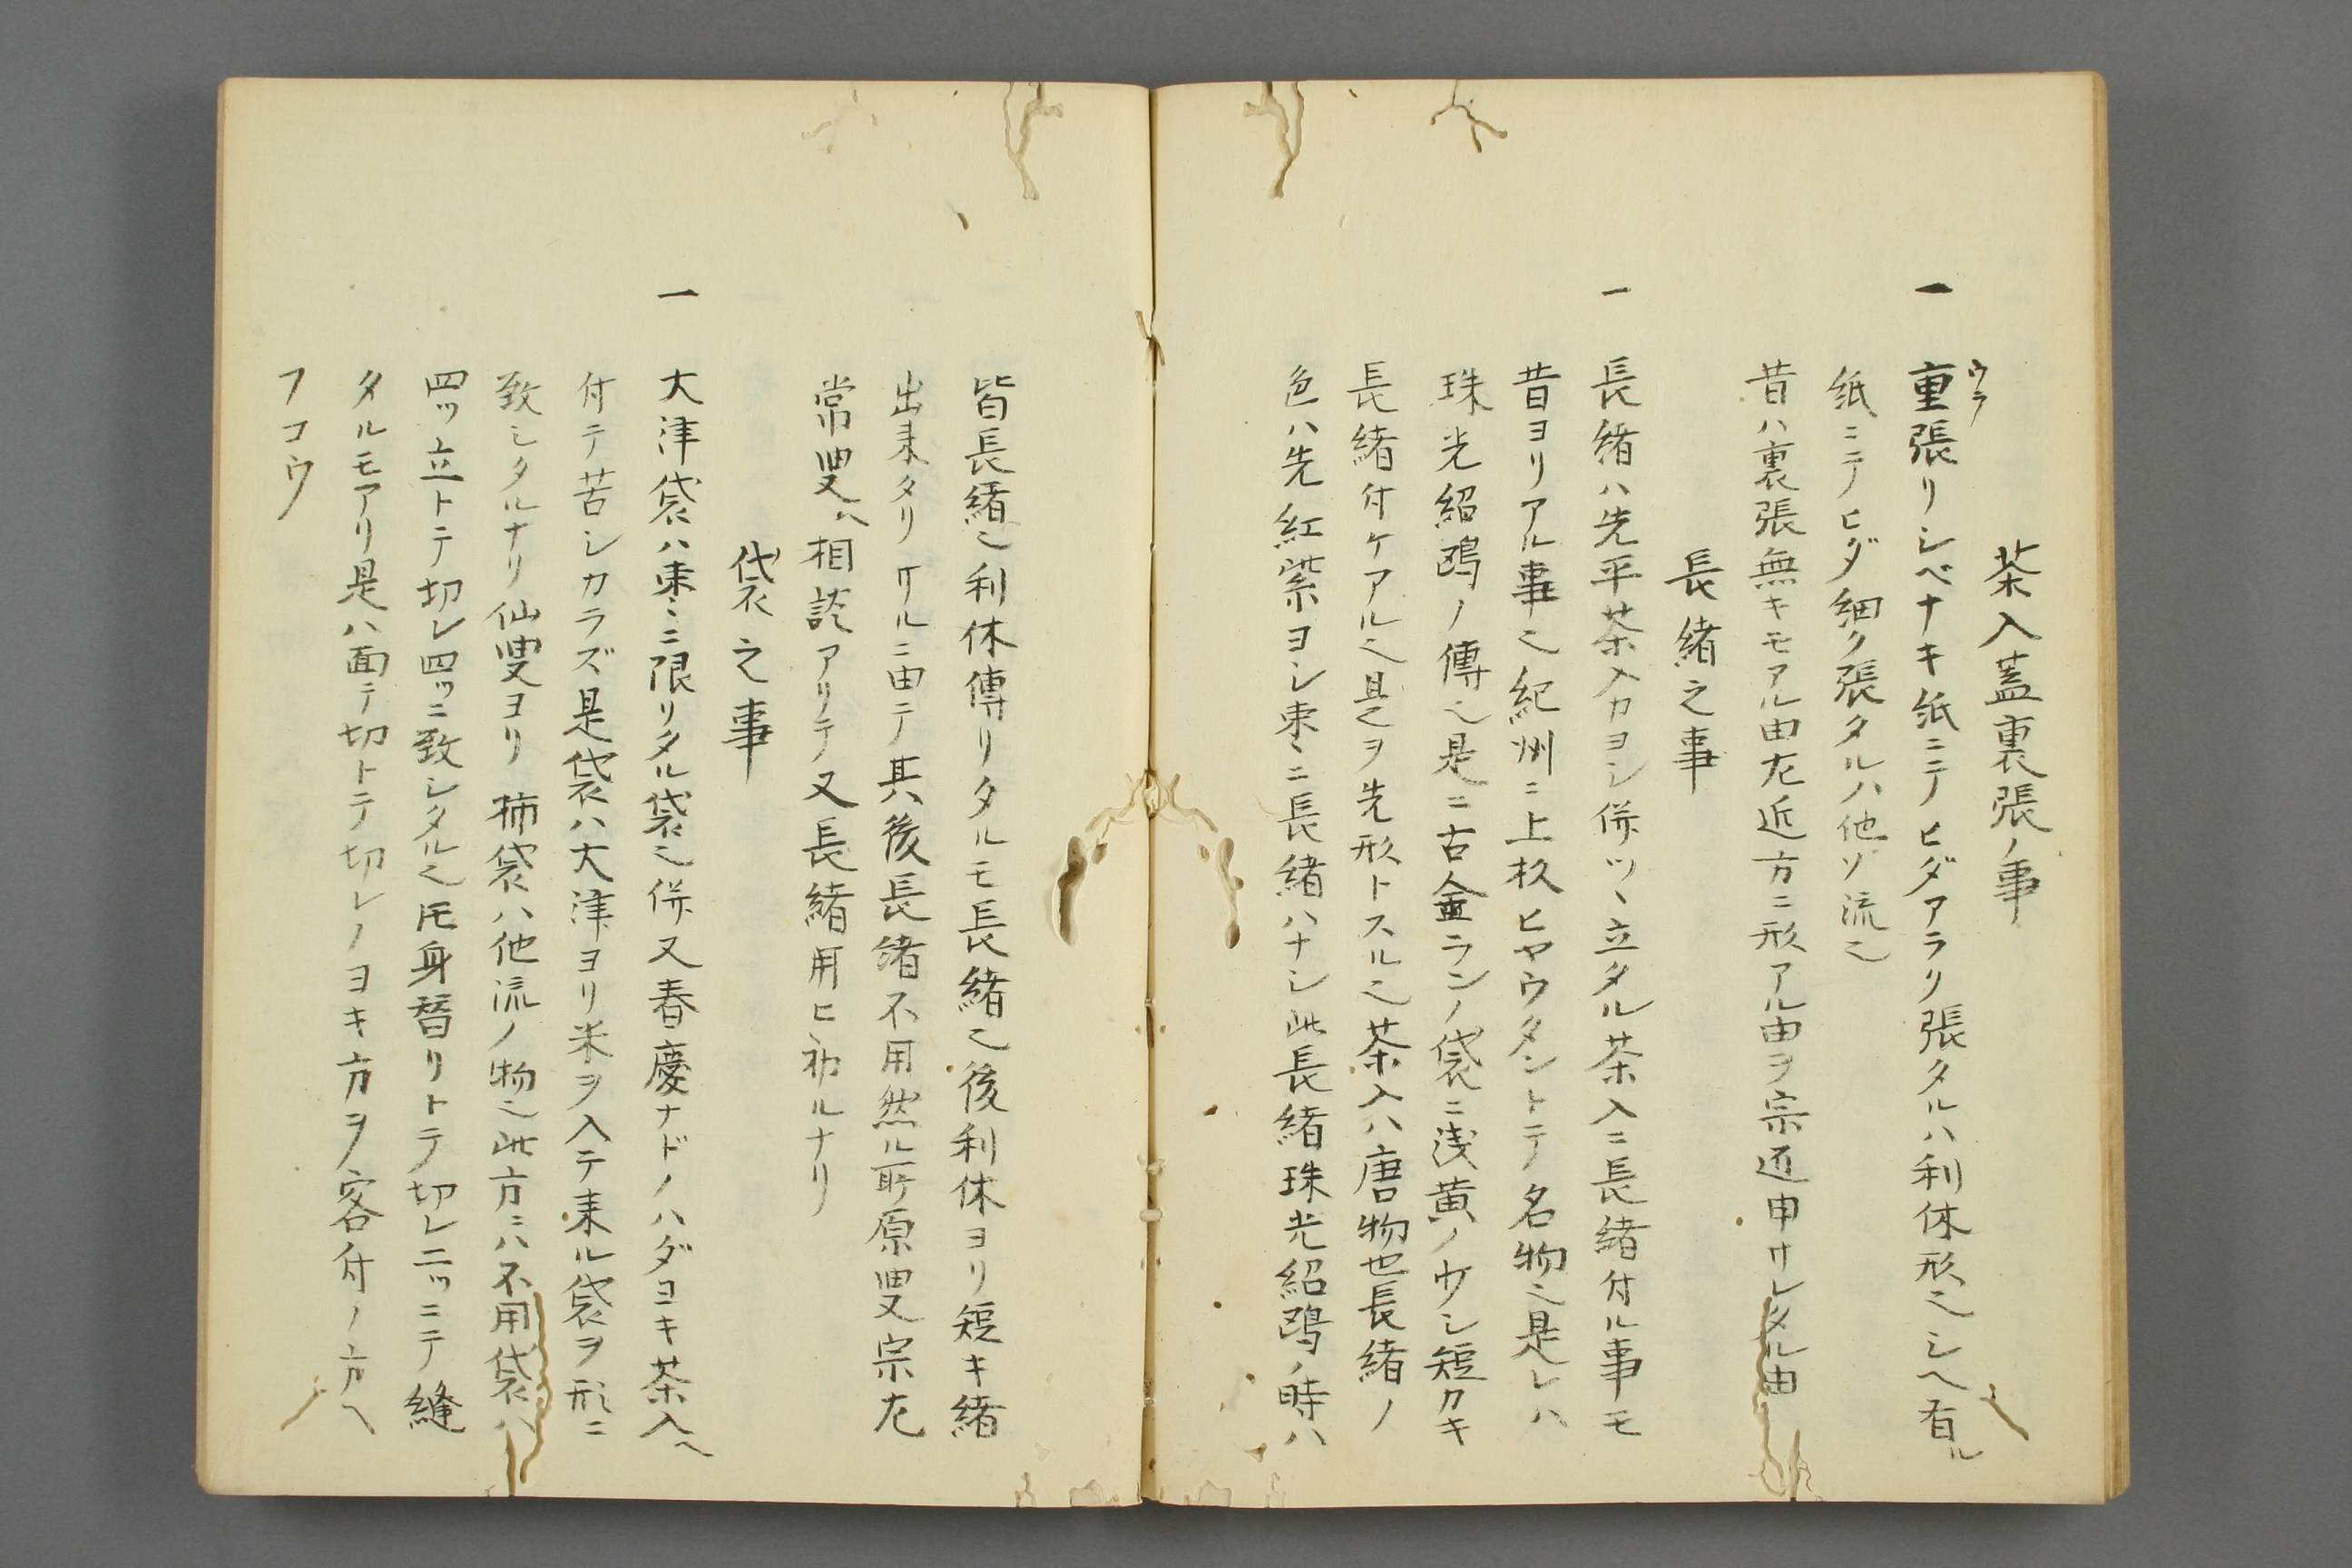 茶入蓋裏張ノ事
一 重張リシベナキ紙ニテヒダアラリ張タルハ利休形也シヘ有ル
ウラ
紙ニテヒダ細ク張タルハ他ソ流也
昔ハ裏張無キモアル由左近方ニ形アル由ヲ宗迊申サレタル由
長緒之事
一 長緒ハ先平茶入カヨシ併ツヽ立タル茶入ニ長緒付ル事モ
昔ヨリアル事也紀州ニ上杦ヒヤウタントテ名物也是レハ
珠光紹鴎ノ傳也是ニ古金ランノ袋ニ浅黄ノウシ短カキ
長緒付ケアル也是ヲ先形トスル也茶入ハ唐物也長緒ノ
色ハ先紅紫ヨシ棗ニ長緒ハナシ此長緒珠光紹鴎ノ時ハ
皆長緒也利休傳リタルモ長緒也後利休ヨリ短キ緒
出来タリケルニ由テ其後長緒不用然ル所原叟宗左
常叟ヘ相談アリテ又長緒用ヒ初ルナリ
袋之事
一 大津袋ハ棗ニ限リタル袋也併又春慶ナドノハダヨキ茶入ヘ
付テ苦シカラズ是袋ハ大津ヨリ米ヲ入テ来ル袋ヲ形ニ
致シタルナリ仙叟ヨリ柿袋ハ他流ノ物也此方ニハ不用袋ハ
四ッ立トテ切レ四ッニ致シタル也圧身替リトテ切レ二ッニテ縫
タルモアリ是ハ面テ切トテ切レノヨキ方ヲ客付ノ方ヘ
フコウ